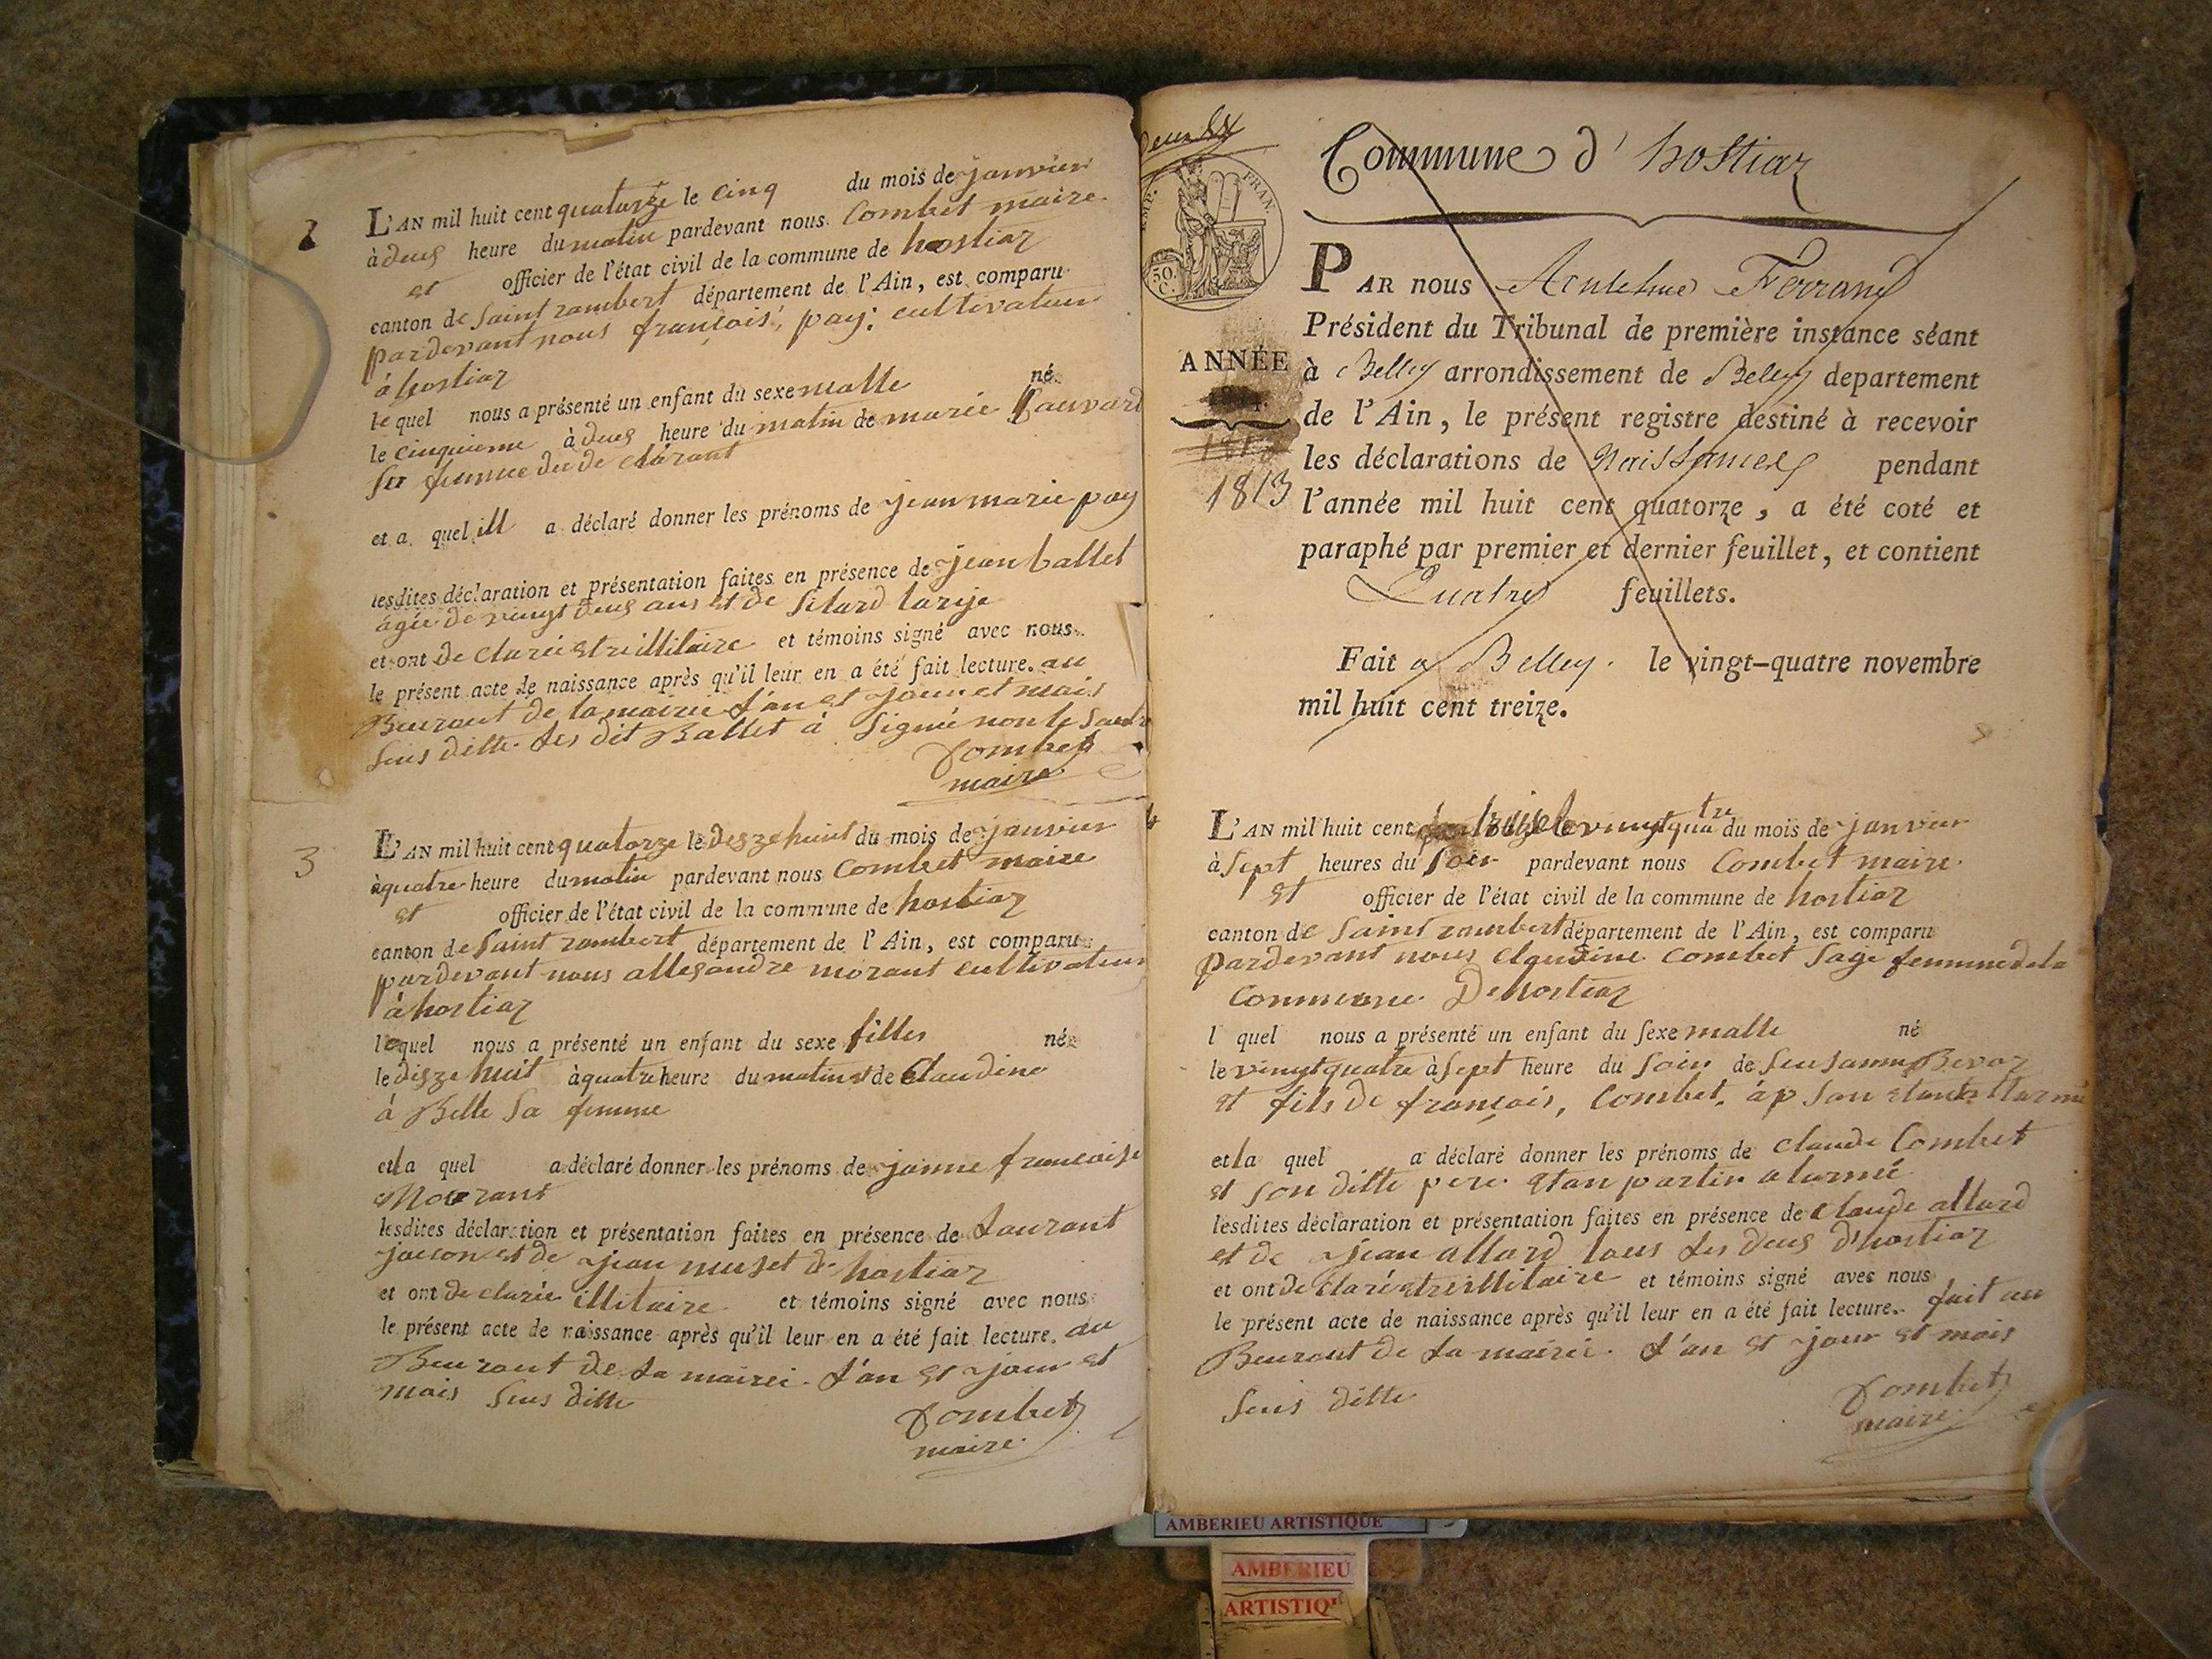 2
L'AN mil huit cent quatorze le cinq du mois de janvier
à deus heure du matin pardevant nous Combet maire
et officier de l'état civil de la commune de hostiaz
canton de Saint rambert département de l'Ain, est comparu
pardevant nous françois, pay: cultivateur
à hostiaz
le quel nous a présenté un enfant du sexe malle né
le cinquieme à deus heure du matin de marie
Sa femme du de clarant
et a quel ill a déclaré donner les prénoms de jean marie pay
lesdites déclaration et présentation faites en présence de jean ballet
agée de vingt deus ans et de
et ont de clarée etre illitaire et témoins signé avec nous
le présent acte de naissance après qu'il leur en a été fait lecture. au
Beuraut de la mairie L'an et jour et mais
Sus ditte. Les dit Ballet à Signié non le
Combet
maire
3
L'AN mil huit cent quatorze le diszehuit du mois de janvier
à quatre heure du matin pardevant nous Combet maire
et officier de l'état civil de la commune de hostiaz
canton de Saint rambert département de l'Ain, est comparu
pardevant nous allesandre morant cultivateur
à hostiaz
lequel nous a présenté un enfant du sexe filles né
le diszehuit à quatre heure du matin et de Claudine
à Belle Sa femme
et la quel a déclaré donner les prénoms de janne francoise
Morant
lesdites déclaration et présentation faites en présence de Laurant
jacon et de jean muset de hostiaz
et ont de clarée illitaire et témoins signé avec nous
le présent acte de naissance après qu'il leur en a été fait lecture. au
Beuraut de La mairie. L'an et jour et
mais Sus ditte
Combet
maire.
Commune d'hostiaz
FRAN.
50.
C.
ANNÉE
1813
PAR nous Antelme Ferrand
Président du Tribunal de première instance séant
à Belley arrondissement de Belley departement
de l'Ain, le présent registre destiné à recevoir
les déclarations de Naissances pendant
l'année mil huit cent quatorze, a été coté et
paraphé par premier et dernier feuillet, et contient
Quatre feuillets.
Fait a Belley. le vingt-quatre novembre
mil huit cent treize.
4
L'AN mil huit cent treize le vingt quatre du mois de janvier
à Sept heures du Soir pardevant nous Combet maire
et officier de l'état civil de la commune de hostiaz
canton de Saint rambert département de l'Ain, est comparu
pardevant nous Claudine Combet Sage femme de la
Commune De hostiaz
l quel nous a présenté un enfant du sexe malle né
le vingt quatre à Sept heure du Soir de Seusanne Bevoz
et fils de françois, Combet,
et la quel a déclaré donner les prénoms de Claude Combet
et Son ditte pere etan partir a larmée
lesdites déclaration et présentation faites en présence de Claude allard
et de jean allard tous Les deus d'hostiaz
et ont de claré etre illitaire et témoins signé avec nous
le présent acte de naissance après qu'il leur en a été fait lecture. fait au
Beuraut de La mairie. L'an et jour et mais
Sus ditte
Combet
maire.
AMBERIEU ARTISTIQUE
AMBERIEU
ARTISTIQ